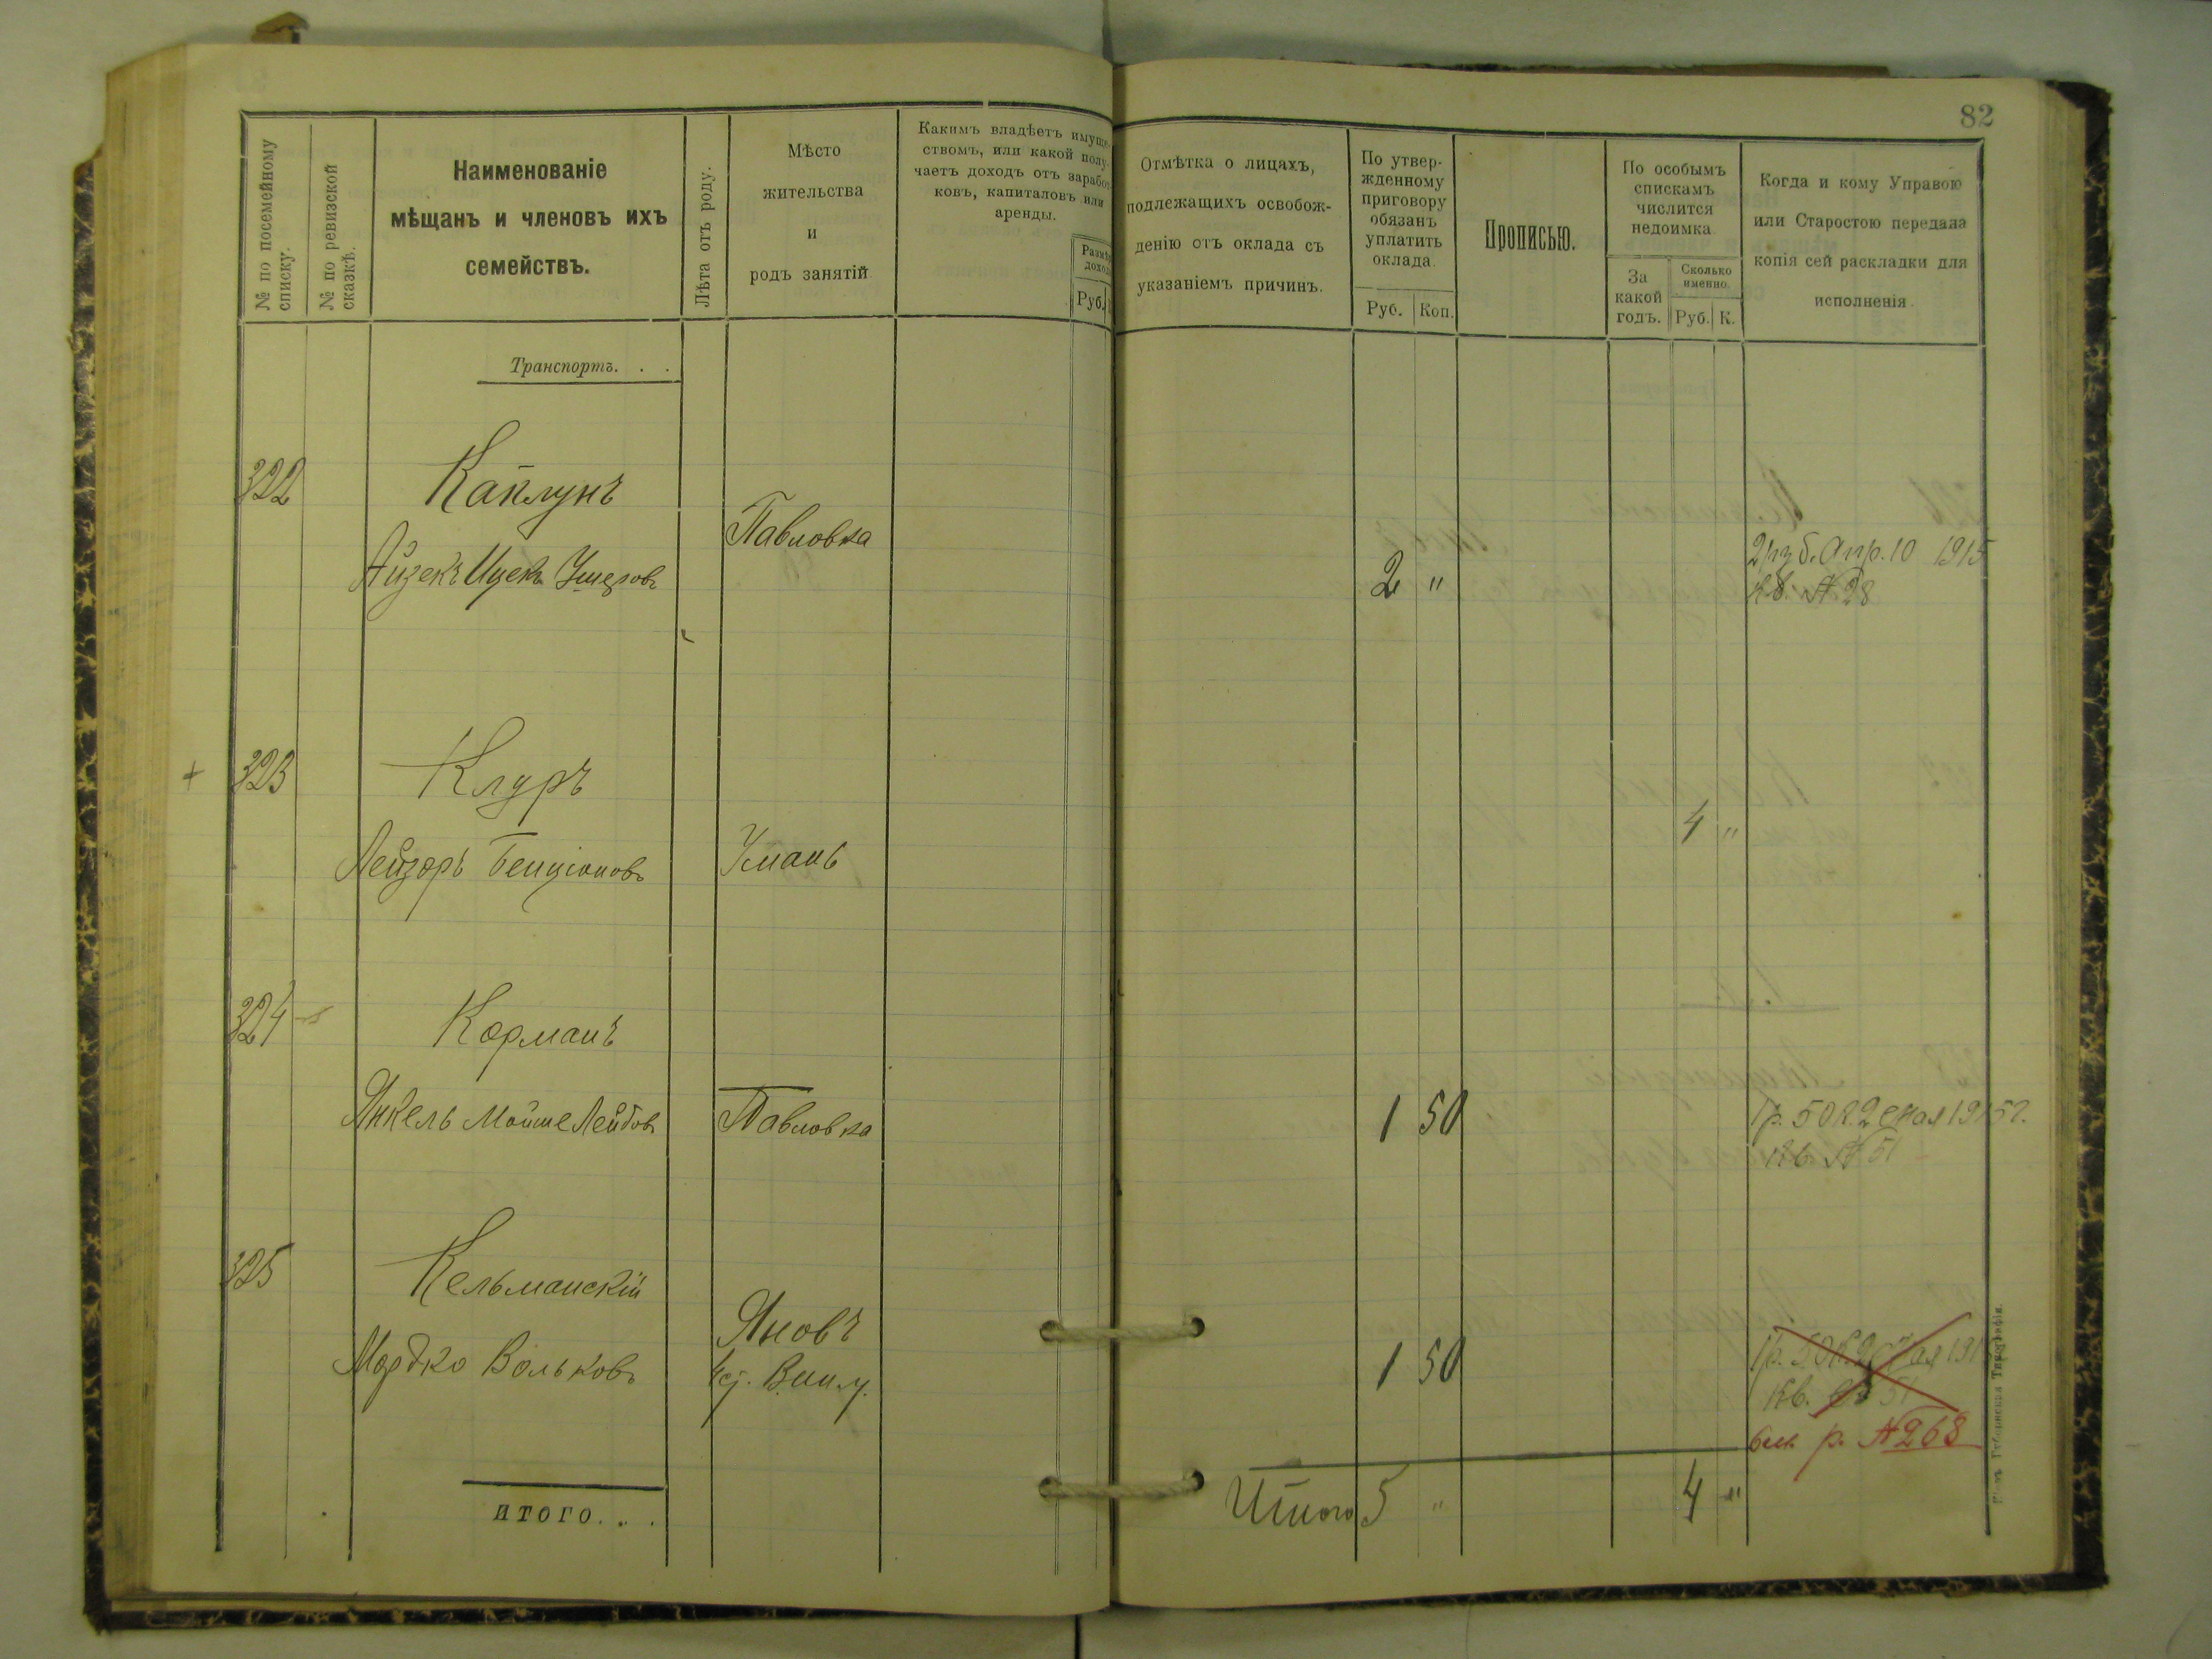 82
№ по посемейному
списку.
№ по ревизской
сказкѣ.
Наименованіе
мѣщанъ и членовъ ихъ
семействъ.
Лѣта отъ роду.
Мѣсто
жительства
и
родъ занятій
Какимъ владѣетъ имуще-
ствомъ, или какой полу-
чаетъ доходъ отъ зарабо
ковъ, капиталовъ или
аренды.
Размѣ
доход
Руб.
Отмѣтка о лицахъ,
подлежащихъ освобож-
денію отъ оклада съ
указаніемъ причинъ.
По утвер-
жденному
приговору
обязанъ
уплатить
оклада.
Руб. Коп.
Прописью.
По особымъ
спискамъ
числится
недоимка
За
какой
годъ.
Сколько
именно.
Руб. К.
Когда и кому Управою
или Старостою передана
копія сей раскладки для
исполненія.
Транспортъ. . .
322 Каплунъ
Айзекъ Ицекъ Ушеровъ Павловка 2 "
2 руб. Апр. 10 1915
кв. № 28
+ 323 Клуръ
Лейзоръ Бенціоновъ Умань 4 "
324 Корманъ
Янкель Мойше Лейбовъ Павловка 1 50
1 р. 50 к. 2 Мая 1915 г.
кв. № 51
325 Кельманскій
Мордко Вольковъ Яновъ
1 50
1 р. 50 к. 2 Мая 191
кв. № 51
р. № 268
итого. . .
Итого 5 " 4 "
Типографія.